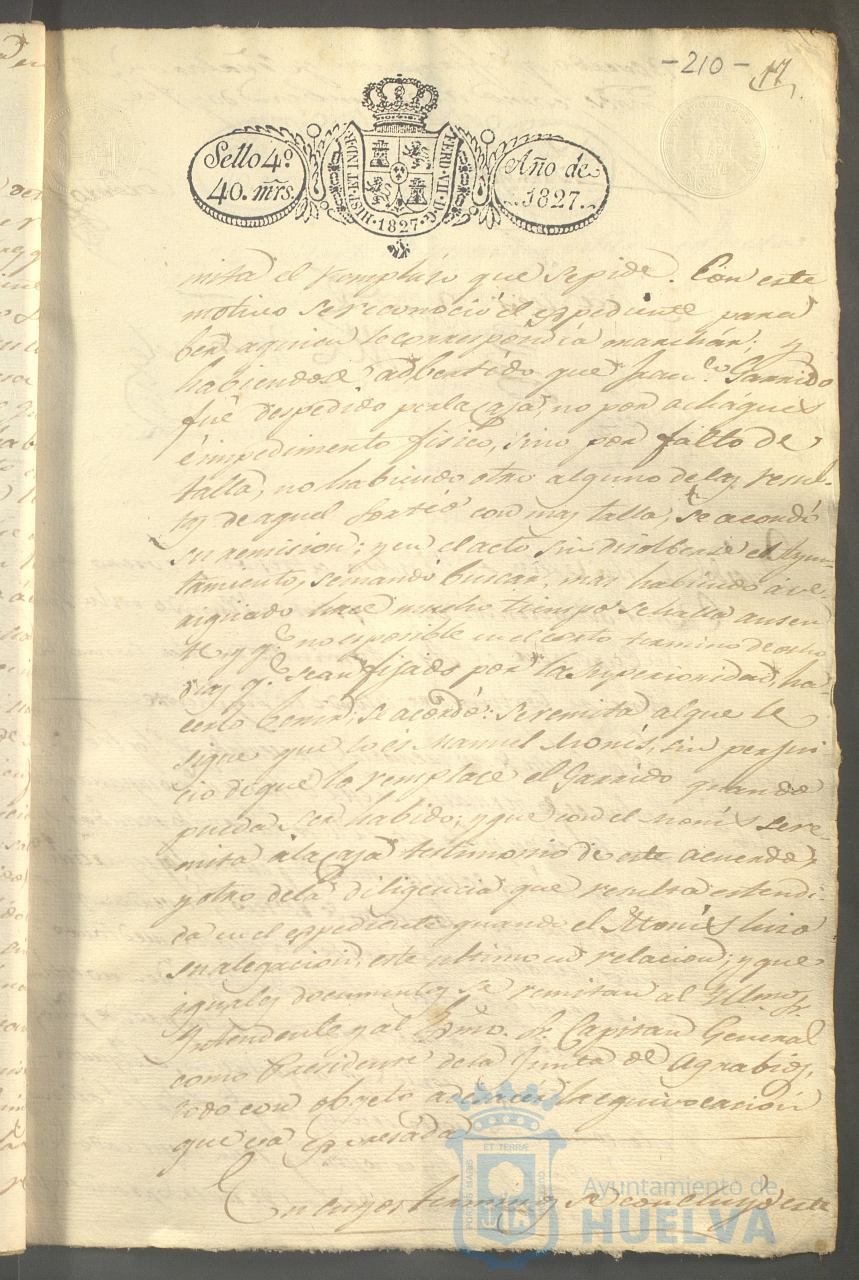 -210- 17
Sello 4º
40. mrs.
HISP. ET IND R.
FERD. VII. D. G.
1827
Año de
1827.
mita el remplazo que se pide. Con este
motivo se reconoció el espediente para
ber a quien le correspondia marchar; y
habiendose adbertido que Franco. Garrido
fué despedido por la caja, no por achaques
é impedimento fisico, sino por falto de
talla, no habiendo otro alguno de las resul-
tas de aquel sortéo con mas talla, se acordó
su remision; y en el acto sin disolberse el Ayun-
tamiento, se mandó buscar, mas habiendo ave-
riguado hace mucho tiempo se halla ausen
te, y qe. no es posible en el corto termino de ocho
dias qe. se an fijado por la superioridad, ha-
cerlo benir; se acordó: se remita al que le
sigue que lo és Manuel Monís, sin perjui
cio de que lo remplace el Garrido quando
pueda ser habido; y que con el Monis se re-
mita a la caja testimonio de este acuerdo,
y otro de la diligencia que resulta estendi-
da en el espediente quando el Monis hizo
su alegacion, este ultimo en relacion; y que
iguales documentos se remitan al Yllmo. Sr.
Yntendente y al Esmo. Sr. Capitan General
como Presidente de la Junta de Agrabios,
todo con objeto a desacer la equivocacion
que ba espresada
En cuyos terminos se concluyó este
ET TERRÆ
PORTUS MARIS
CUSTODIA
Ayuntamiento de
HUELVA